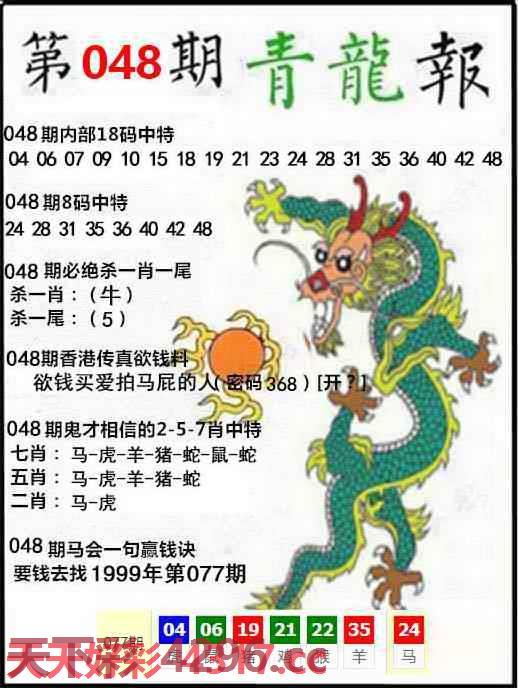 第048期 青龍報
048期内部18码中特
04 06 07 09 10 15 18 19 21 23 24 28 31 35 36 40 42 48
048期8码中特
24 28 31 35 36 40 42 48
048期必绝杀一肖一尾
杀一肖：(牛)
杀一尾：(5)
048期香港传真欲钱料
欲钱买爱拍马屁的人(密码368)[开？]
048期鬼才相信的2-5-7肖中特
七肖：马-虎-羊-猪-蛇-鼠-蛇
五肖：马-虎-羊-猪-蛇
二肖：马-虎
048期马会一句赢钱诀
要钱去找1999年第077期
04 06 19 21 22 35 24
077期 鼠 猪 鸡 猴 羊 马
天下好彩42967.cc